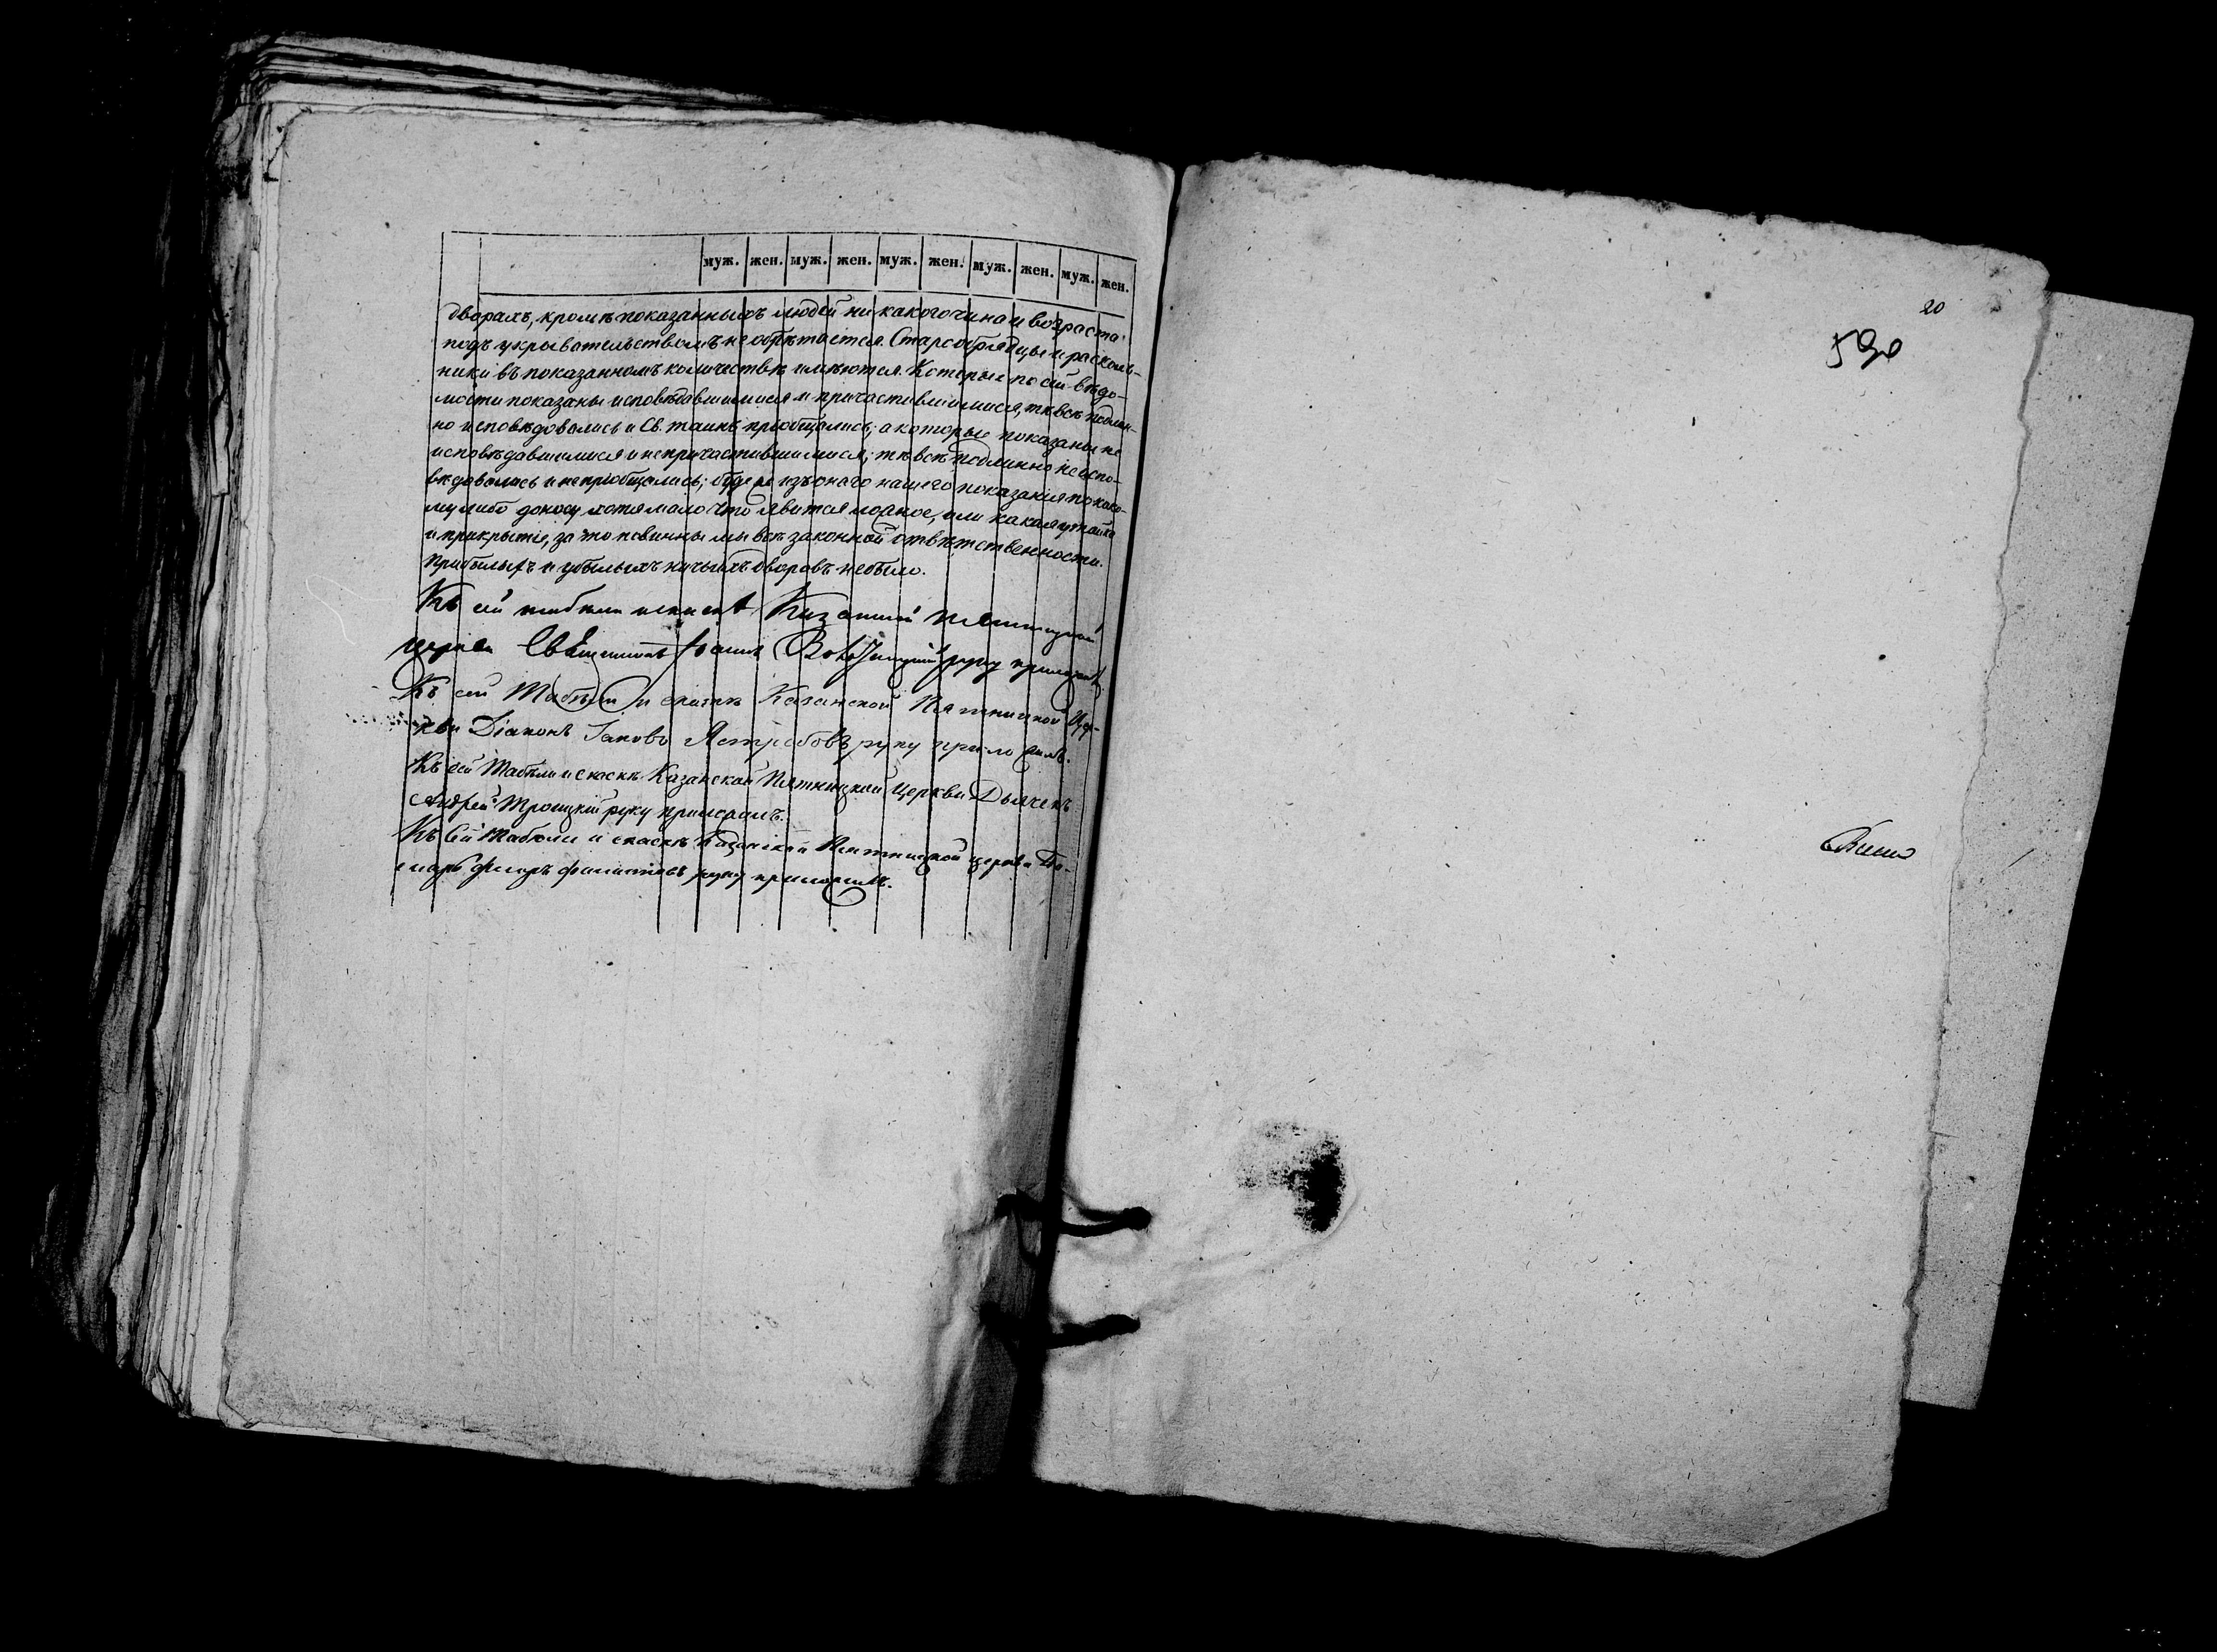 муж. жен. муж. жен. муж. жен. муж. жен. муж. жен.
дворахъ, кромѣ показанныхъ людей ни какого чина и возраста
подъ укрывательствомъ не обрѣтается. Старообрядцы и расколь-
ники въ показанномъ количествѣ имѣются. Которые по сей вѣдо-
мости показаны исповѣдавшимися и причастившимися, тѣ всѣ подлин-
но исповѣдовались и Св. таинъ пріобщались; а которые показаны не
исповѣдавшимися и не причастившимися, тѣ всѣ подлинно не испо-
вѣдовались и не пріобщались; буде же изъ онаго нашего показанія по како-
му либо доносу хотя мало что явится ложное, или какая утайка
и прикрытіе, за то повинны мы всѣ законной отвѣтственности.
Прибылыхъ и убылыхъ ни чьихъ дворовъ не было.
Къ сей табели и скаскѣ Казанской Пятницкой
церкви Священникъ Іоаннъ руку приложилъ.
Къ сей Табели и скаскѣ Казанской Пятницкой Цер-
кви Діаконъ Іаковъ Ястребовъ руку приложилъ.
Къ сей Табели и скаскѣ Казанской Пятницкой Церкви Дьячекъ
Андрей Троицкій руку приложилъ.
Къ сей Табели и скаскѣ Казанской Пятницкой церкви По-
номарь руку приложилъ.
20
590